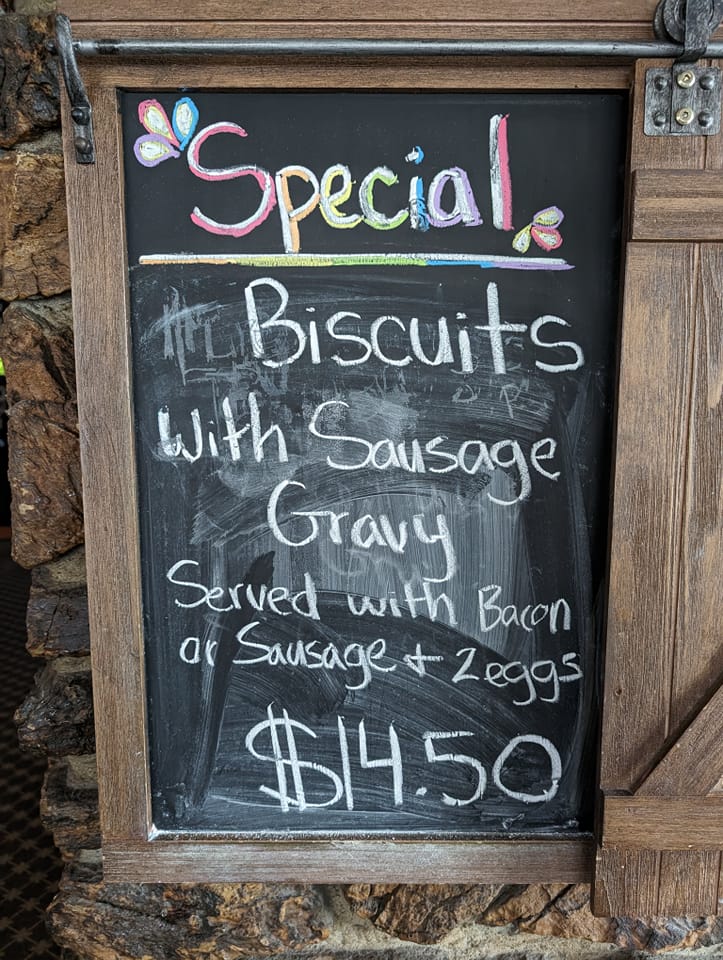 Special
Biscuits
with Sausage
Gravy
Served with Bacon
or Sausage + 2 eggs
$14.50